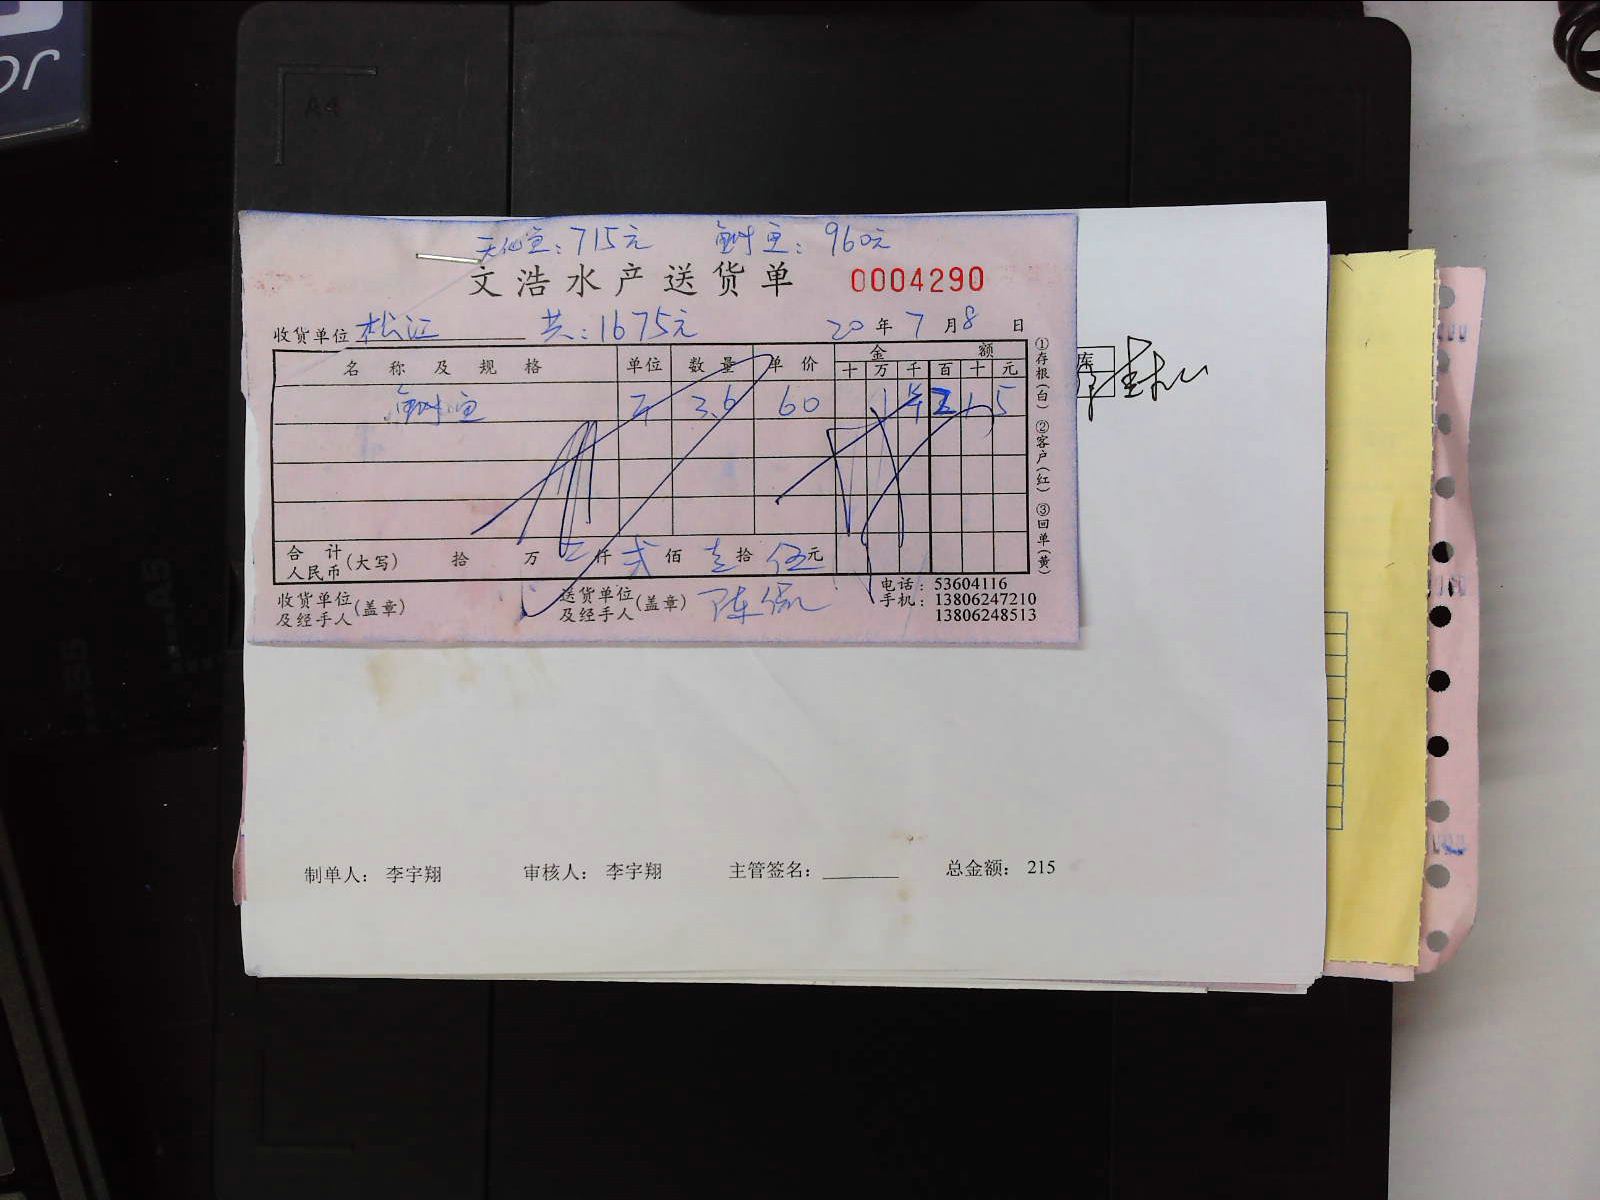 A4
天仙鱼：715元 鲥鱼：960元
文浩水产送货单 0004290
收货单位 松江 共：1675元 20年7月8日
名称及规格 单位 数量 单价 金额
十 万 千 百 十 元
鲥鱼 斤 3.6 60 5
合计人民币(大写) 拾 万 仟 贰佰 壹拾 伍元
收货单位及经手人(盖章) 送货单位及经手人(盖章) 陈
电话：53604116
手机：13806247210
13806248513
①存根(白) ②客户(红) ③回单(黄)
库
A5
制单人： 李宇翔 审核人： 李宇翔 主管签名：________ 总金额： 215